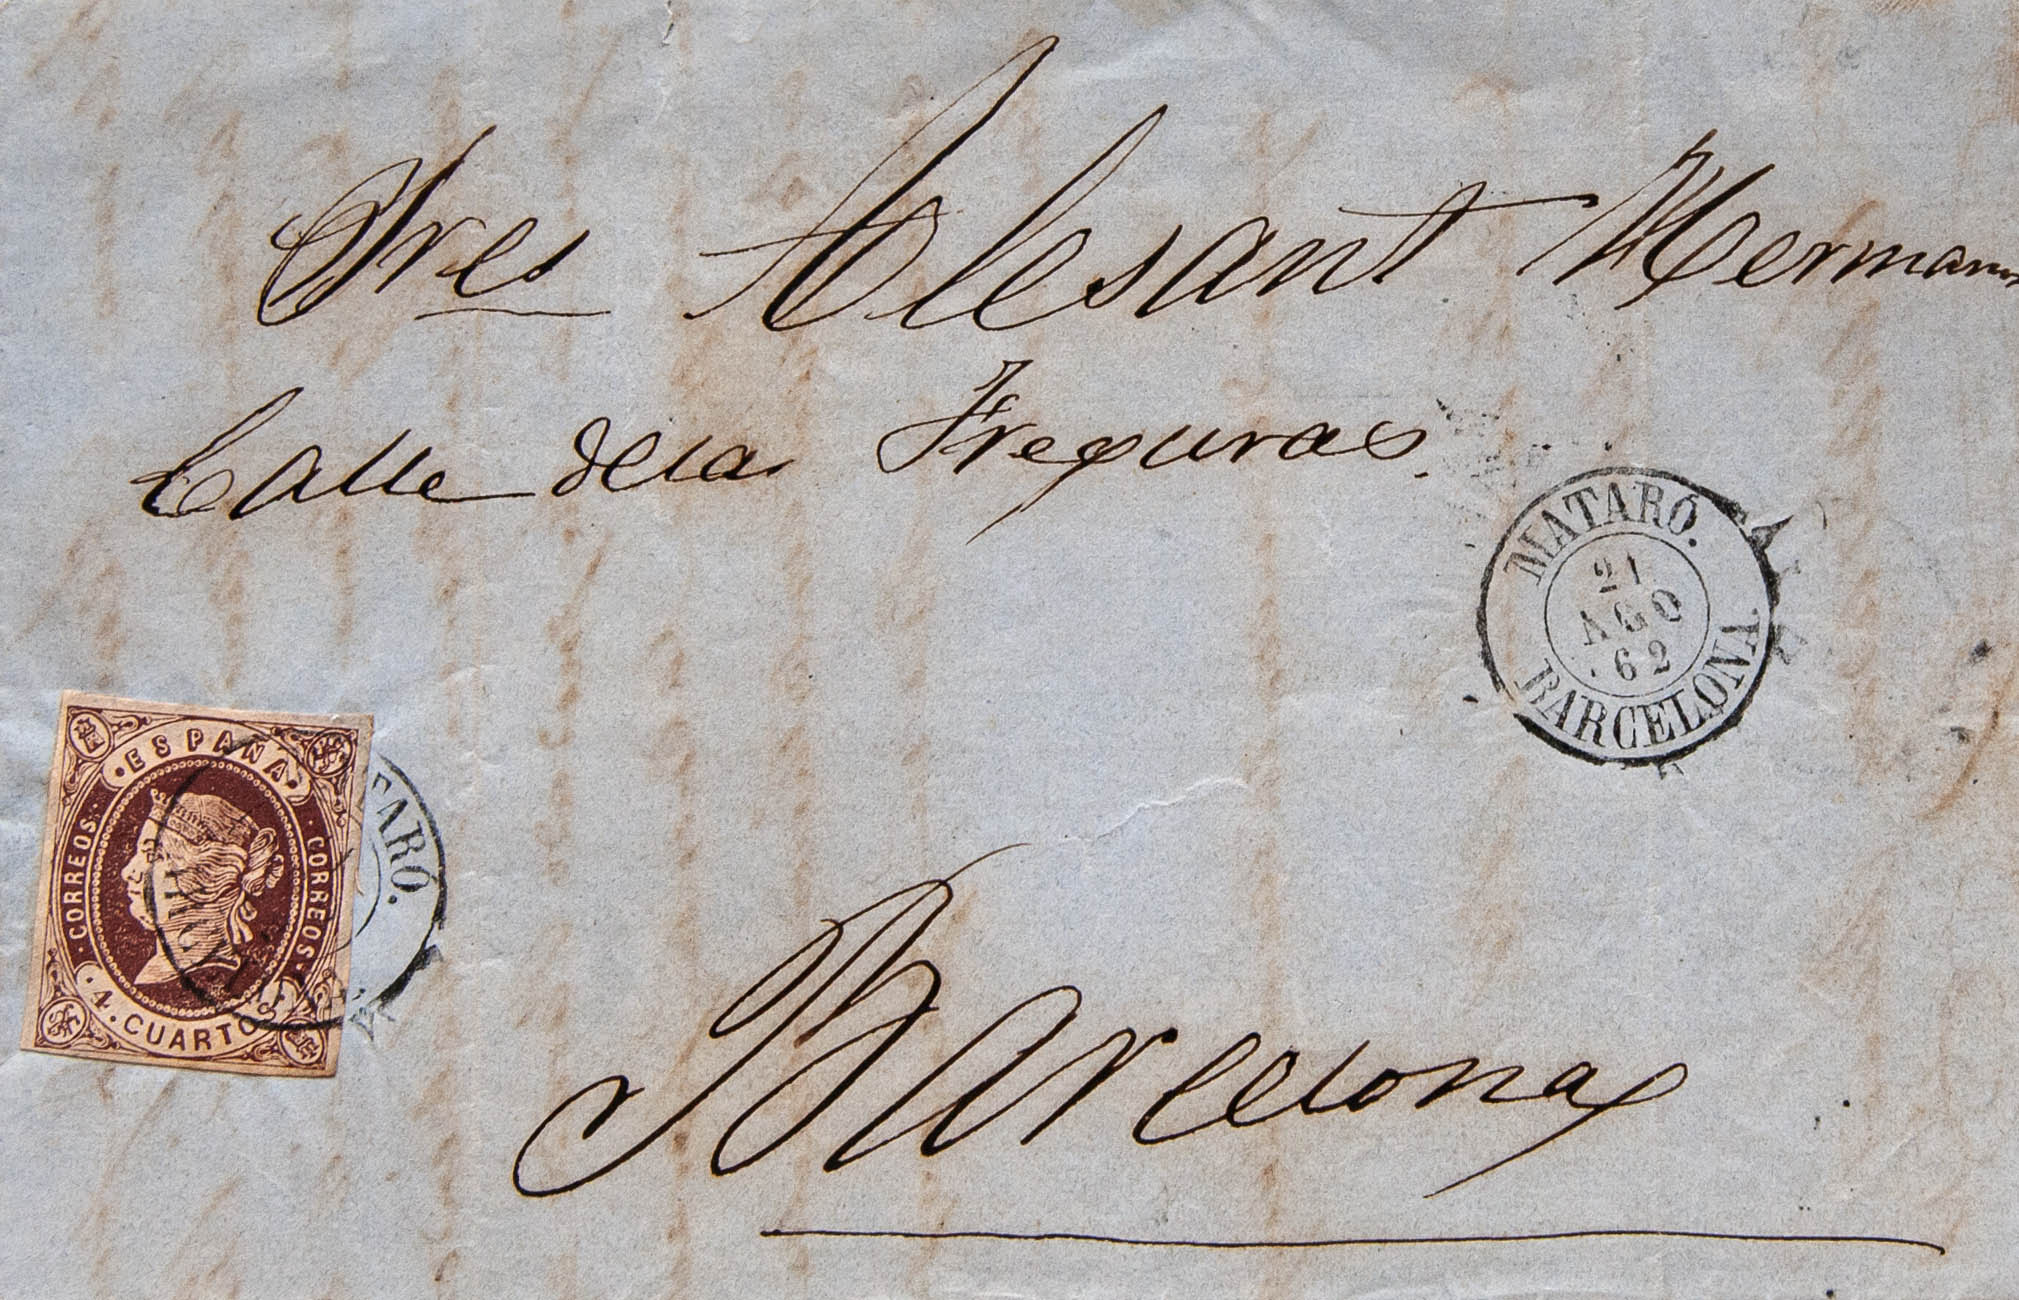 Sres Alesant Hermanos
Calle de la Freguras.
MATARÓ.
21
AGO
62
BARCELONA
ESPAÑA
CORREOS
CORREOS
4. CUARTOS
TARÓ.
Barcelona